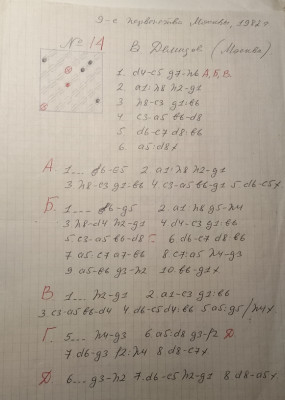 9-е первенство Москвы, 1982 г
№ 14 В. (Москва)
1. d4-c5 g7:h6 А, Б, В.
2. a1:h8 h2-g1
3. h8-c3 g1:b6
4. c3-a5 b6-d8
5. d6-c7 d8:b6
6. a5:d8x
А 1... f6-e5 2. a1:h8 h2-g1
3 h8-c3 g1:b6 4 c3-a5 b6-g1 5 d6-c5x
Б. 1... f6-g5 2. a1:h8 g5-h4
3 h8-d4 h2-g1 4 d4-c3 g1:b6
5 c3-a5 b6-d8 Г 6. d6-c7 d8:b6
7 a5-c7 a7-b6 8. c7:a5 h4-g3
9 a5-b6 g3-h2 10. b6-g1x
В 1... h2-g1 2. a1-c3 g1:b6
3 c3-a5 b6-d4 4 d6-c5 d4:b6 5 a5:g5/h4x
Г. 5... h4-g3 6. a5:d8 g3-f2 Д
7 d6-g3 f2:h4 8. d8-e7x
Д. 6... g3-h2 7. d6-c5 h2-g1 8. d8-a5x.